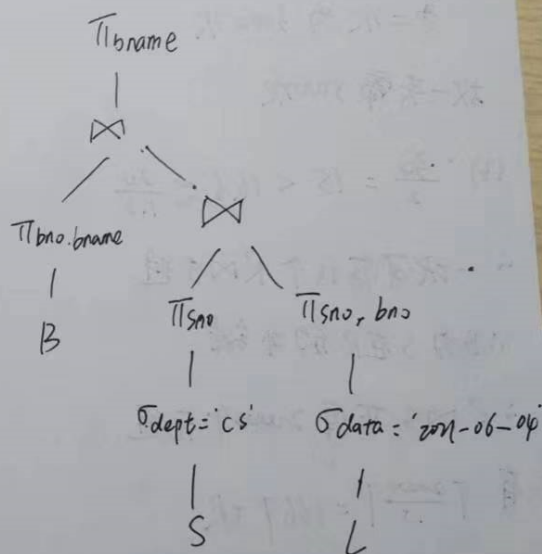 πbname
⋈
πbno.bname ⋈
B πsno πsno, bno
σdept='cs' σdata='2021-06-04'
S L